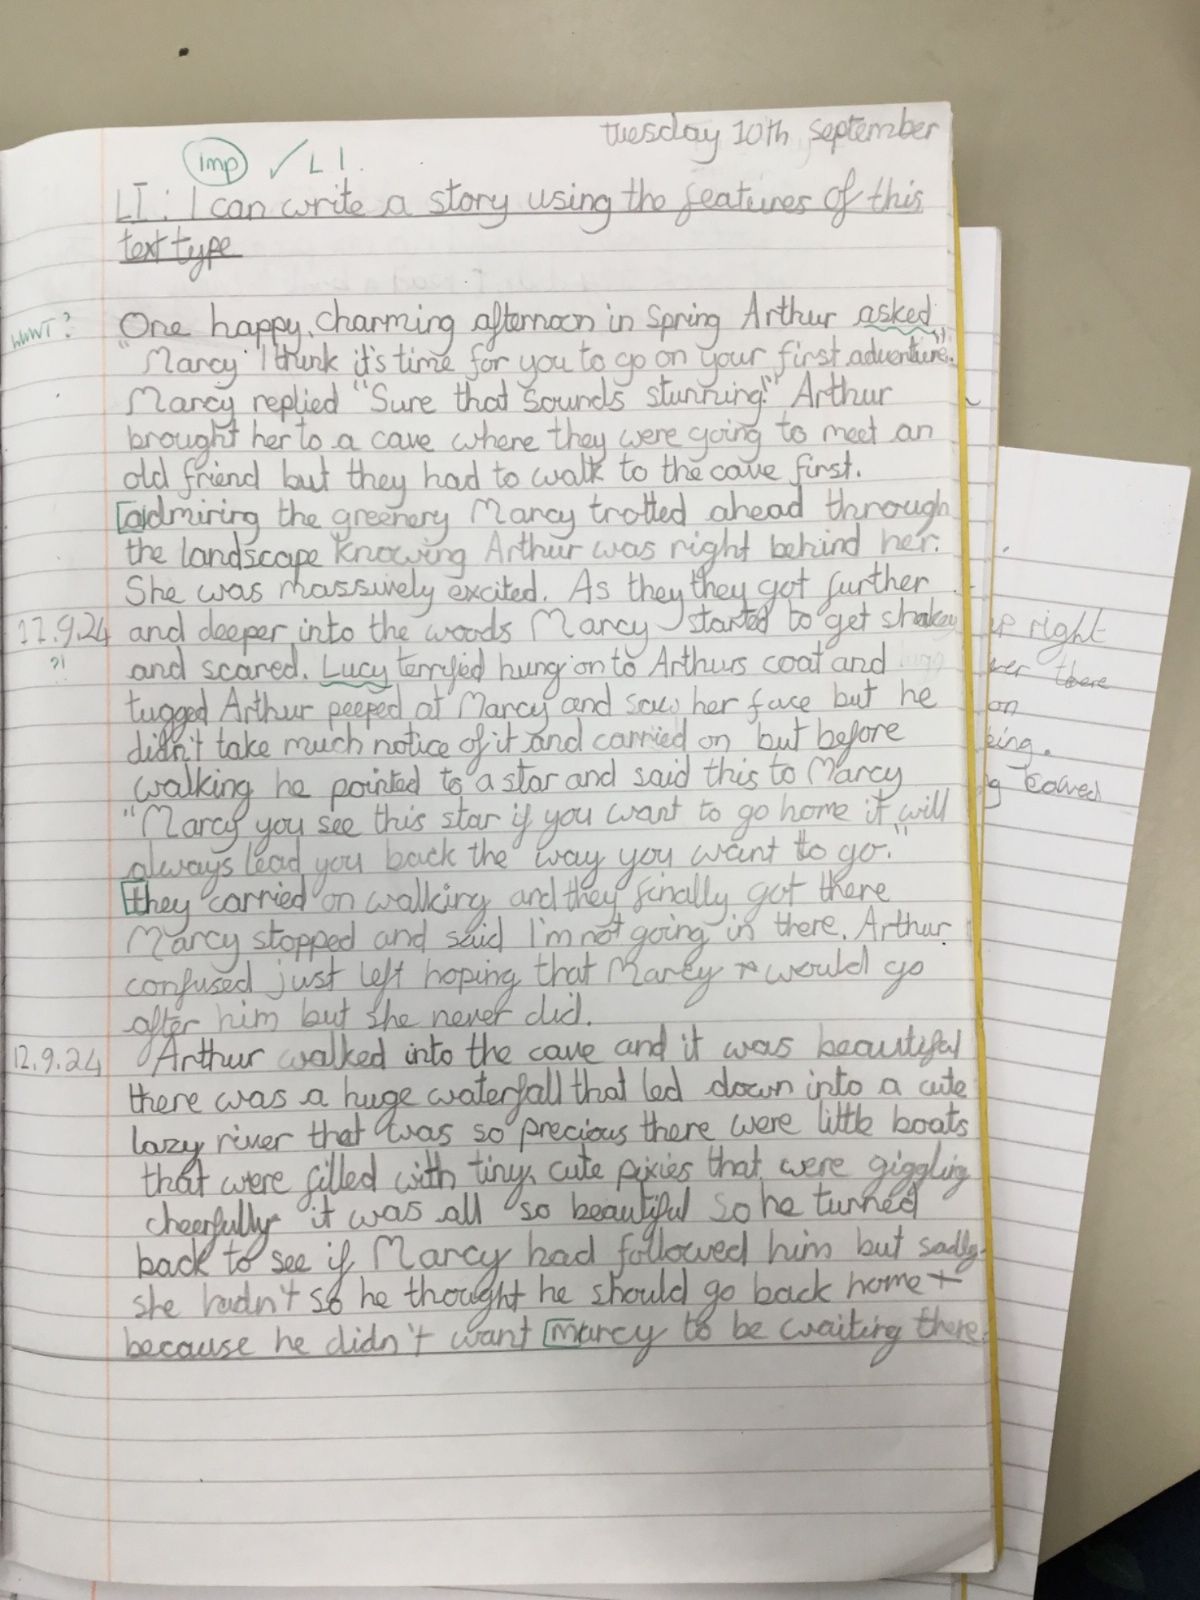 tuesday 10th september
imp ✓ LI.
LI: I can write a story using the features of this
text type
WWWT? One happy, charming afternoon in Spring Arthur asked
"Marcy I think it's time for you to go on your first adventure."
Marcy replied "Sure that sounds stunning!" Arthur
brought her to a cave where they were going to meet an
old friend but they had to walk to the cave first.
admiring the greenery Marcy trotted ahead through
the landscape knowing Arthur was right behind her.
She was massively excited. As they they got further
12.9.24 and deeper into the woods Marcy started to get shakey
?! and scared. Lucy terrified hung on to Arthurs coat and
tugged Arthur peeped at Marcy and saw her face but he
didn't take much notice of it and carried on but before
walking he pointed to a star and said this to Marcy
"Marcy you see this star if you want to go home it will
always lead you back the way you want to go."
they carried on walking and they finally got there
Marcy stopped and said I'm not going in there. Arthur
confused just left hoping that Marcy would go
after him but she never did.
12.9.24 Arthur walked into the cave and it was beautiful
there was a huge waterfall that led down into a cute
lazy river that was so precious there were little boats
that were filled with tiny, cute pixies that were giggling
cheerfully it was all so beautiful so he turned
back to see if Marcy had followed him but sadly
she hadn't so he thought he should go back home
because he didn't want marcy to be waiting there.
right
there
on